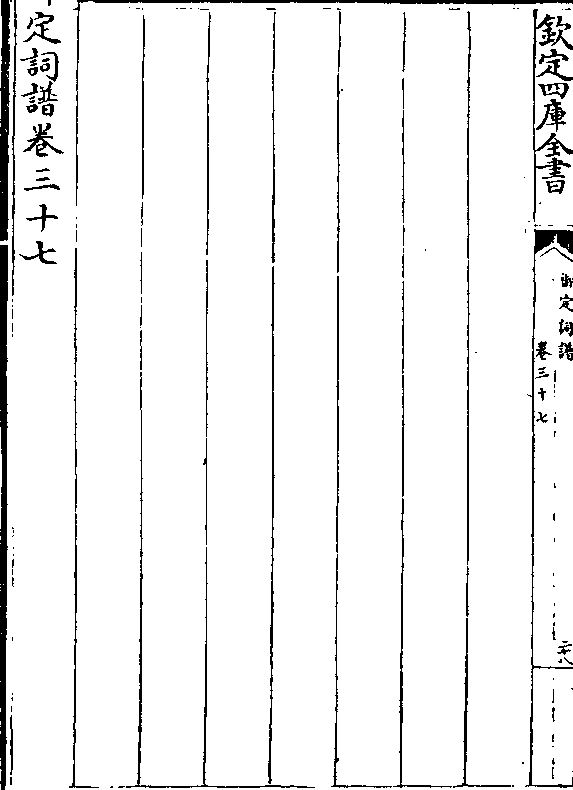 欽定四庫全書
御定詞譜
卷三十七
二十八
定詞譜卷三十七